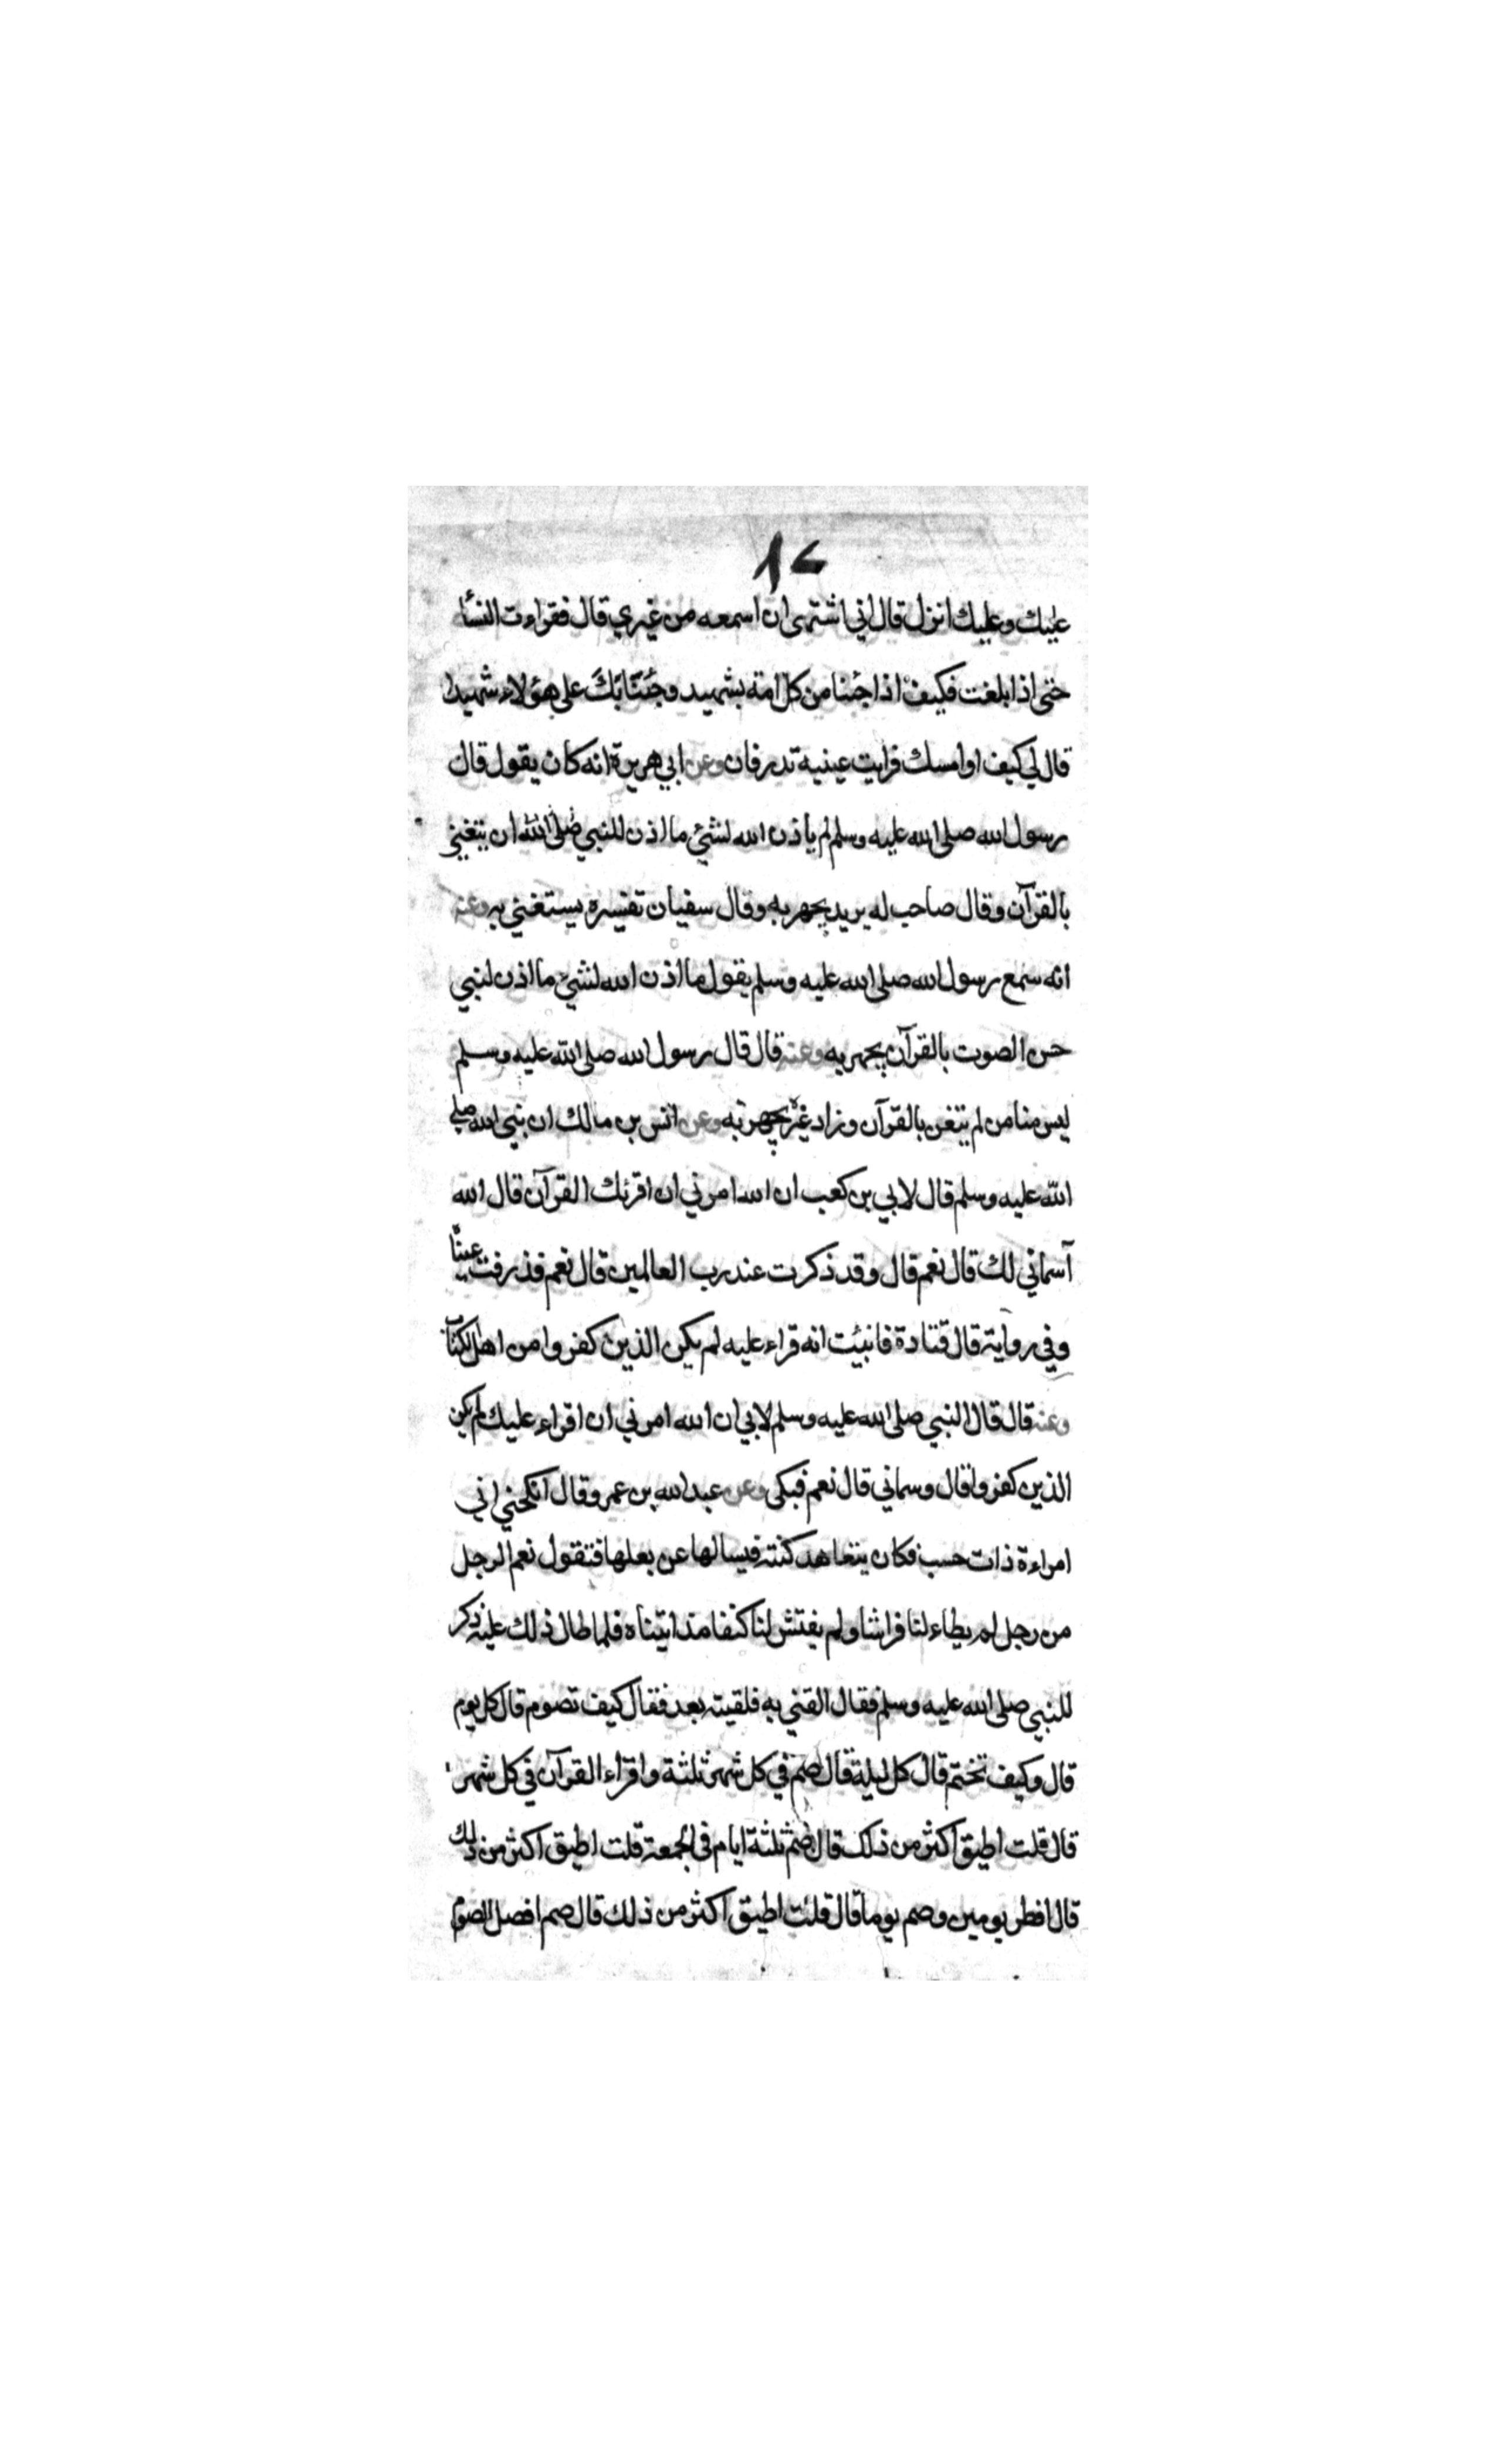 ٨٢
عليك وعليك انزل قال اني اشتهى ان اسمعه من غيري قال فقراءت النسأ
حتى اذا بلغت فكيف اذا جئنا من كل امة بشهيد وجئنا بك على هؤلاء شهيدا
قال لي كيف او امسك فرايت عينيه تدرفان وعن ابي هريرة انه كان يقول قال
رسول الله صلى الله عليه وسلم لم يأذن الله لشئ ما اذن للنبي صلى الله ان يتغنى
بالقرآن وقال صاحب له يريد يجهر به وقال سفيان تفسيره يستغني به وعنه
انه سمع رسول الله صلى الله عليه وسلم يقول ما اذن الله لشئ ما اذن لنبي
حسن الصوت بالقرآن يجهر به وعنه قال قال رسول الله صلى الله عليه وسلم
ليس منا من لم يتغن بالقرآن وزاد غيره يجهر به وعن انس بن مالك ان نبي الله صلى
الله عليه وسلم قال لابي بن كعب ان الله امرني ان اقرئك القرآن قال الله
آسماني لك قال نعم قال وقد ذكرت عند رب العالمين قال نعم فذرفت عيناه
وفي رواية قال قتادة فانبئت انه قراء عليه لم يكن الذين كفروا من اهل الكتاب
وعنه قال قال النبي صلى الله عليه وسلم لابي ان الله امرني ان اقراء عليك لم يكن
الذين كفروا قال وسماني قال نعم فبكى وعن عبد الله بن عمرو قال انكحني ابي
امراءة ذات حسب فكان يتعاهد كنته فيسالها عن بعلها فتقول نعم الرجل
من رجل لم يطاء لنا فراشا ولم يفتش لنا كنفا مذ اتيناه فلما طال ذلك عليه ذكر
للنبي صلى الله عليه وسلم فقال القني به فلقيته بعد فقال كيف تصوم قال كل يوم
قال وكيف تختم قال كل ليلة قال صم في كل شهر ثلثة واقراء القرآن في كل شهر
قال قلت اطيق اكثر من ذلك قال صم ثلثة ايام في الجمعة قلت اطيق اكثر من ذلك
قال افطر يومين وصم يوما قال قلت اطيق اكثر من ذلك قال صم افضل الصوم